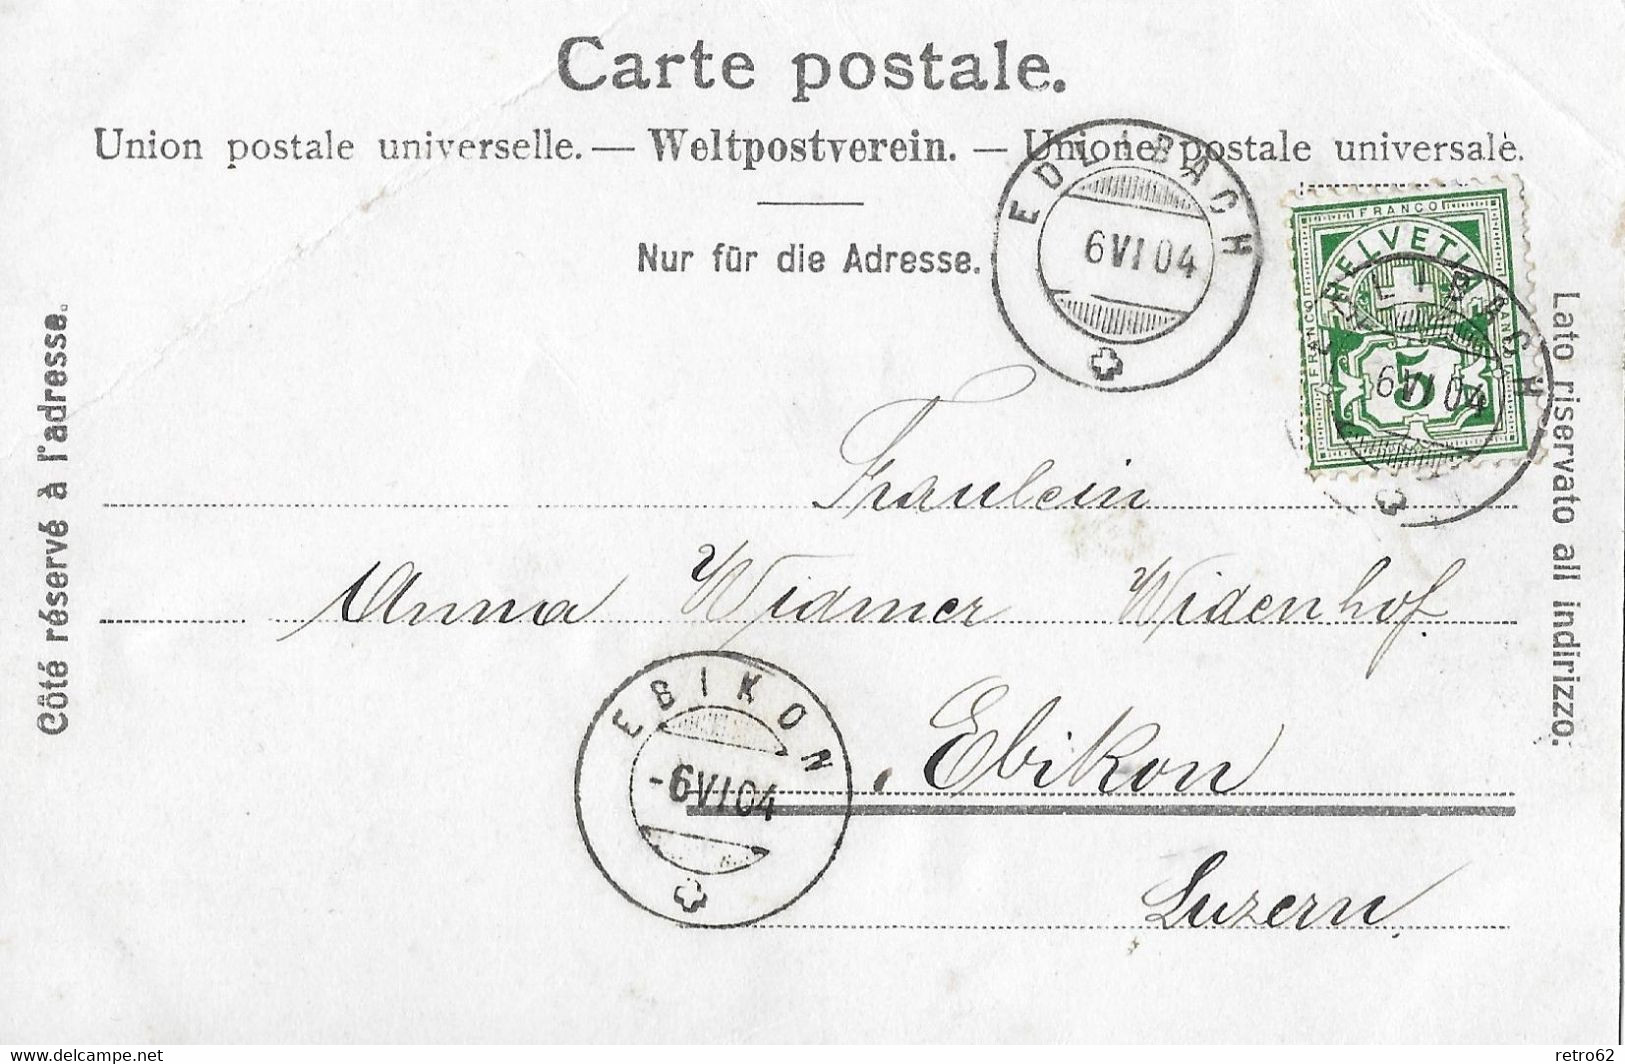 Carte postale.
Union postale universelle. — Weltpostverein. — Unione postale universale.
Nur für die Adresse.
EDLIBACH
6 VI 04
FRANCO
HELVETIA
FRANCO
FRANCO
5
EDLIBACH
6 VI 04
Côté réservé à l'adresse.
Lato riservato all indirizzo.
Fraulein
Anna Widmer Widenhof
EBIKON
-6 VI 04
Ebikon
Luzern
delcampe.net
retro62